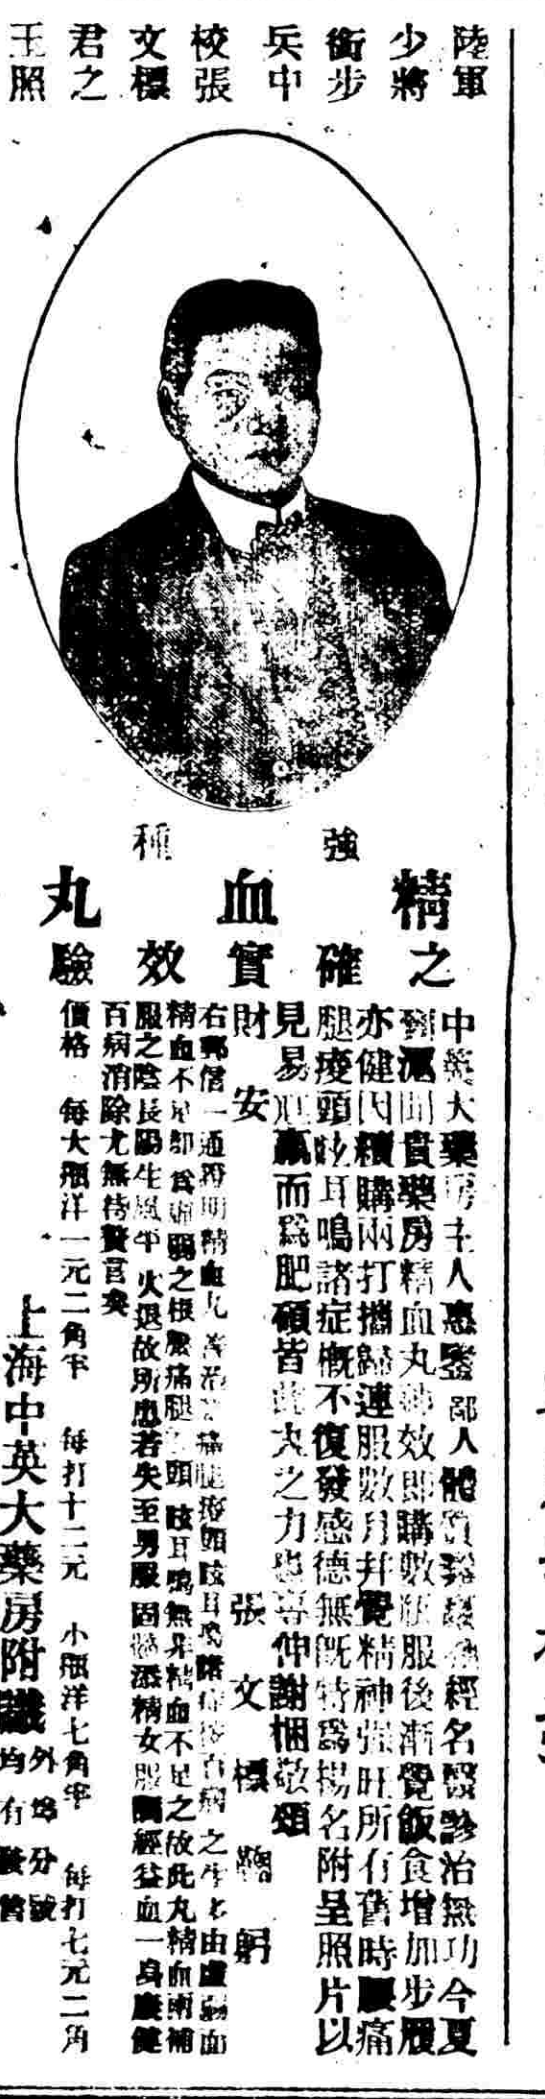 陸軍
少將
銜步
兵中
校張
文標
君之
玉照
強種
精血丸
之確實效驗
中英大藥房主人惠鑒鄙人體質經名醫診治無功今夏
滬聞貴藥房精血丸神效即購數瓶服後漸覺飯食增加步履
亦健因續購兩打攜歸連服數月并覺精神強旺所有舊時腰痛
腿痠頭眩耳鳴諸症概不復發感德無旣特爲揚名附呈照片以
見易羸而爲肥碩皆此丸之力也專伸謝悃敬頌
財安 張文標鞠躬
右郵信一通證明精血丸善治腰痛腿痠頭眩耳鳴諸症按百病之生多由虛弱而
精血不足卽爲虛弱之根腰痛腿頭眩耳鳴無非精血不足之故此丸精血兩補
服之陰長陽生風平火退故所患若失至男服固精添精女服調經益血一身康健
百病消除尤無待贅言矣
價格 每大瓶洋一元二角半 每打十二元 小瓶洋七角半 每打七元二角
上海中英大藥房附識
外埠分號
均有發售